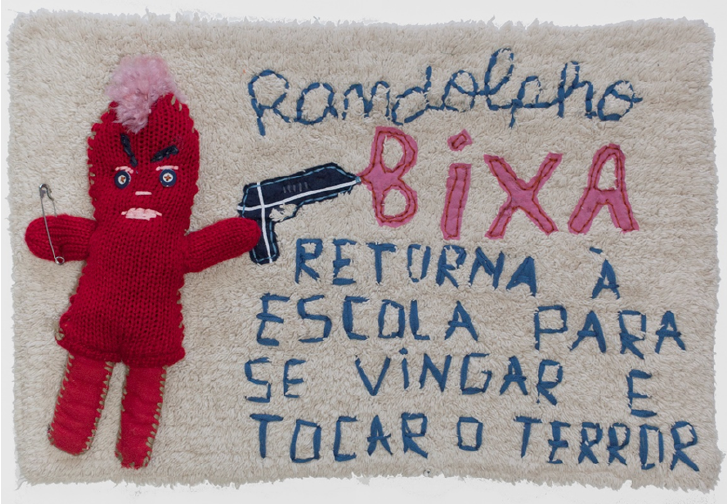 Randolpho
BiXA
RETORNA À
ESCOLA PARA
SE ViNGAR E
TOCAR O TERROR